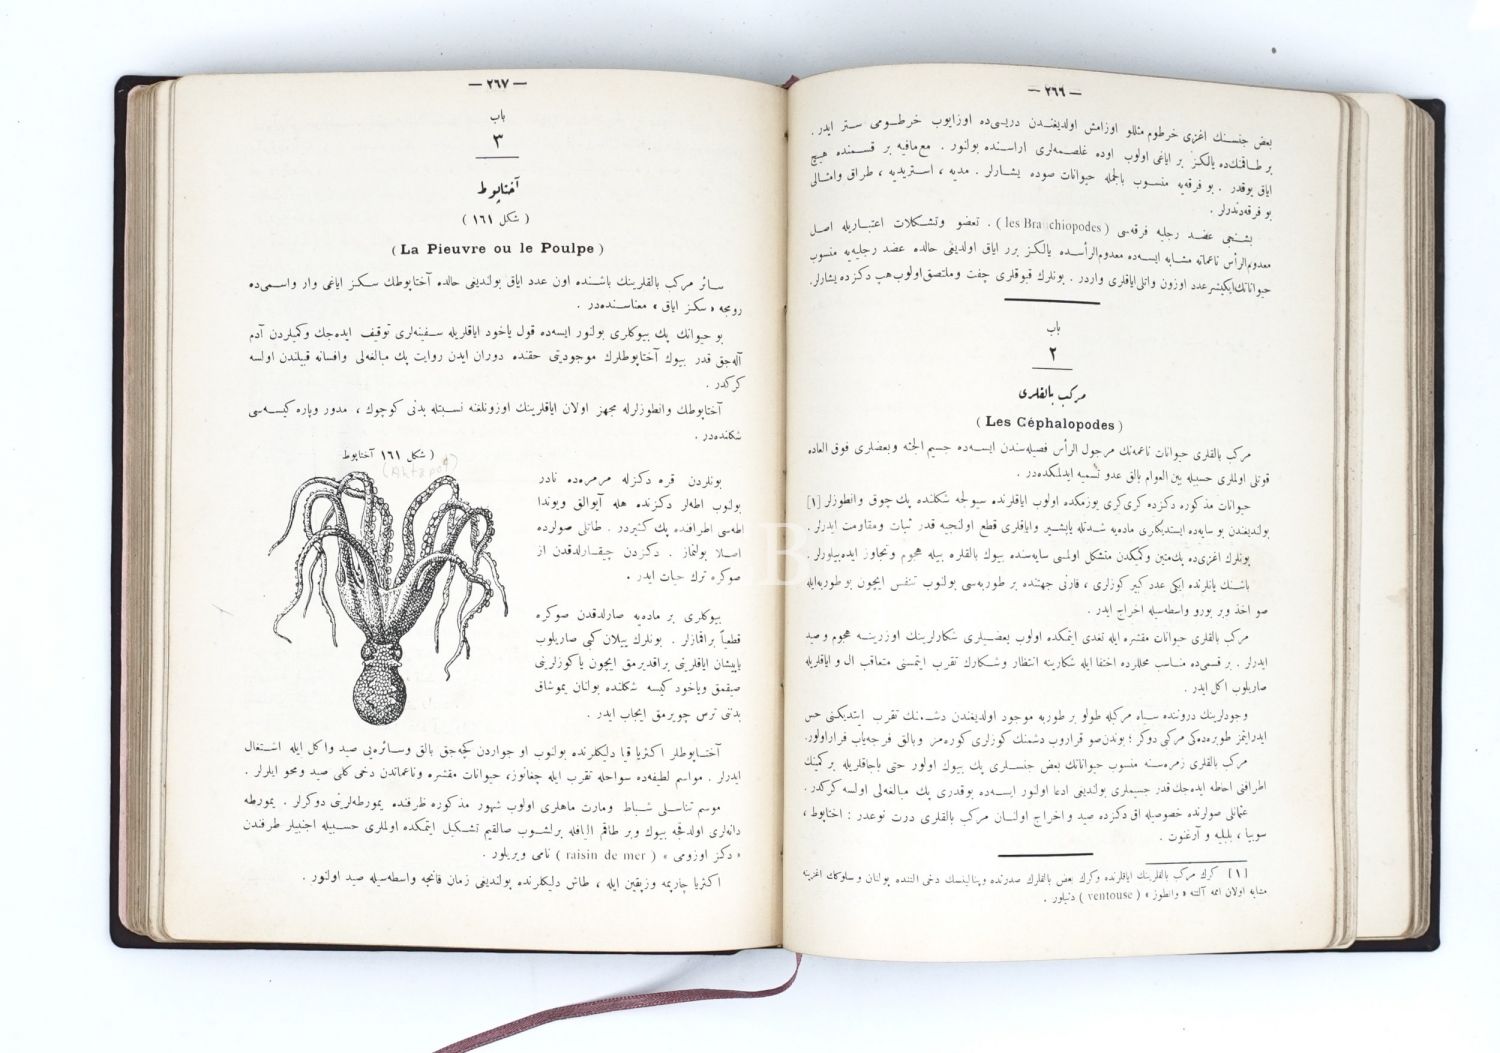 — ٢٦٦ —
بعض جنسنك اغزی خرطوم مثللو اوزامش اولديغندن دريسی‌ده اوزايوب خرطومی ستر ايدر .
بر طاقمنك‌ده يالكز بر اياغی اولوب اوده غلصمه‌لری اراسنده بولنور . مع‌مافيه بر قسمنده هيچ
اياق يوقدر . بو فرقه‌يه منسوب بالجمله حيوانات صوده يشارلر . مديه ، استريديه ، طراق وامثالی
بو فرقه‌دندرلر .
بشنجی عضد رجليه فرقه‌سی ( les Brachiopodes ) . تعضو وتشكلات اعتباريله اصل
معدوم‌الرأس ناعماته مشابه ايسه‌ده معدوم‌الرأسده يالكز برر اياق اولديغی حالده عضد رجليه‌يه منسوب
حيواناتك ايكيشر عدد اوزون واتلی اياقلری واردر . بونلرك قبوقلری چفت وملتصق اولوب هپ دكزده يشارلر.
باب
٢
مركب بالقلری
( Les Céphalopodes )
مركب بالقلری حيوانات ناعمه‌نك مرجول الرأس فصيله‌سندن ايسه‌ده جسيم الجثه وبعضلری فوق العاده
قوتلی اولملری حسبيله بين العوام بالق عدو تسميه ايدلمكده‌در .
حيوانات مذكوره دكزده كری كری يوزمكده اولوب اياقلرنده سيولجه شكلنده پك چوق وانطوزلر [١]
بولنديغندن بو سايه‌ده ايستدكلری ماده‌يه شدتله ياپيشير واياقلری قطع اولنجيه قدر ثبات ومقاومت ايدرلر .
بونلرك اغزی‌ده پك‌متين وكمكدن متشكل اولمسی سايه‌سنده بيوك بالقلره بيله هجوم وتجاوز ايده‌بيلورلر .
باشنك يانلرنده ايكی عدد كبير كوزلری ، قارنی جهتنده بر طوربه‌سی بولنوب تنفس ايچون بو طوربه‌ايله
صو اخذ وبر بورو واسطه‌سيله اخراج ايدر .
مركب بالقلری حيوانات مقشره ايله تغدی ايتمكده اولوب بعضيلری شكارلرينك اوزرينه هجوم و صيد
ايدرلر . بر قسمی‌ده مناسب محللرده اختفا ايله شكارينه انتظار وشكارك تقرب ايتمسنی متعاقب ال و اياقلريله
صاريلوب اكل ايدر .
وجودلرينك دروننده سياه مركبله طولو بر طوربه موجود اولديغندن دشمنك تقرب ايتديكنی حس
ايدرايتمز طوربه‌ده‌كی مركبی دوكر ؛ بوندن صو قراروب دشمنك كوزلری كوره‌مز وبالق فرجه‌ياب فرار اولور.
مركب بالقلری زمره‌سنه منسوب حيواناتك بعض جنسلری پك بيوك اولور حتی باجاقلريله بر كمينك
اطرافنی احاطه ايده‌جك قدر جسيملری بولنديغی ادعا اولنور ايسه‌ده بوقدری پك مبالغه‌لی اولسه كركدر .
عثمانلی صولرنده خصوصيله اق دكزده صيد و اخراج اولنان مركب بالقلری درت نوعدر : اختاپوط ،
سوبيا ، بلبليه و آرغنوت .
[١] كرك مركب بالقلرينك اياقلرنده وكرك بعض بالقلرك صدرنده دخی التنده بولنان و سلوكك اغزينه
مشابه اولان امه آلتنه « وانطوز » ( ventouse ) دنيلور .
— ٢٦٧ —
باب
٣
آختاپوط
( شكل ١٦١ )
( La Pieuvre ou le Poulpe )
سائر مركب بالقلرينك باشنده اون عدد اياق بولنديغی حالده آختاپوطك سكز اياغی وار واسمی‌ده
رومجه « سكز اياق » معناسنده‌در .
بو حيوانك پك بيوكلری بولنور ايسه‌ده قول ياخود اياقلريله سفينه‌لری توقيف ايده‌جك وكميلردن آدم
آله‌جق قدر بيوك آختاپوطلرك موجوديتی حقنده دوران ايدن روايت پك مبالغه‌لی وافسانه قبيلندن اولسه
كركدر .
آختاپوطك وانطوزلرله مجهز اولان اياقلرينك اوزونلغنه نسبتله بدنی كوچوك ، مدور وپاره كيسه‌سی
شكلنده‌در .
( شكل ١٦١ آختاپوط
(Ahtapod)
بونلردن قره دكزله مرمره‌ده نادر
بولنوب اطه‌لر دكزنده هله آيوالق ويوندا
اطه‌سی اطرافنده پك كثيردر . طاتلی صولرده
اصلا بولنماز . دكزدن چيقارلدقدن از
صوكره ترك حيات ايدر .
بيوكلری بر ماده‌يه صارلدقدن صوكره
قطعياً براقمازلر . بونلرك ييلان كبی صاريلوب
ياپيشان اياقلرينی براقديرمق ايچون ياكوزلرينی
صيقمق وياخود كيسه شكلنده بولنان يموشاق
بدننی ترس چويرمق ايجاب ايدر .
آختاپوطلر اكثريا قيا دليكلرنده بولنوب او جواردن كچه‌جق بالق وسائره‌يی صيد واكل ايله اشتغال
ايدرلر . مواسم لطيفه‌ده سواحله تقرب ايله چغانوز، حيوانات مقشره وناعماتدن دخی كلی صيد ومحو ايلرلر .
موسم تناسلی شباط ومارت ماهلری اولوب شهور مذكوره ظرفنده يمورطه‌لرينی دوكرلر . يمورطه
دانه‌لری اولدقجه بيوك وبر طاقم اليافله برلشوب صالقيم تشكيل ايتمكده اولملری حسبيله اجنبيلر طرفندن
« دكز اوزومی » ( raisin de mer ) نامی ويريلور .
اكثريا چارپمه وزپقين ايله ، طاش دليكلرنده بولنديغی زمان قانجه واسطه‌سيله صيد اولنور .